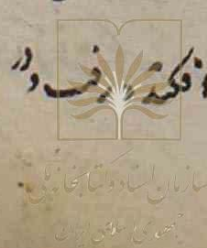 افکند و رفت و در
سازمان اسناد و کتابخانه ملی
جمهوری اسلامی ایران